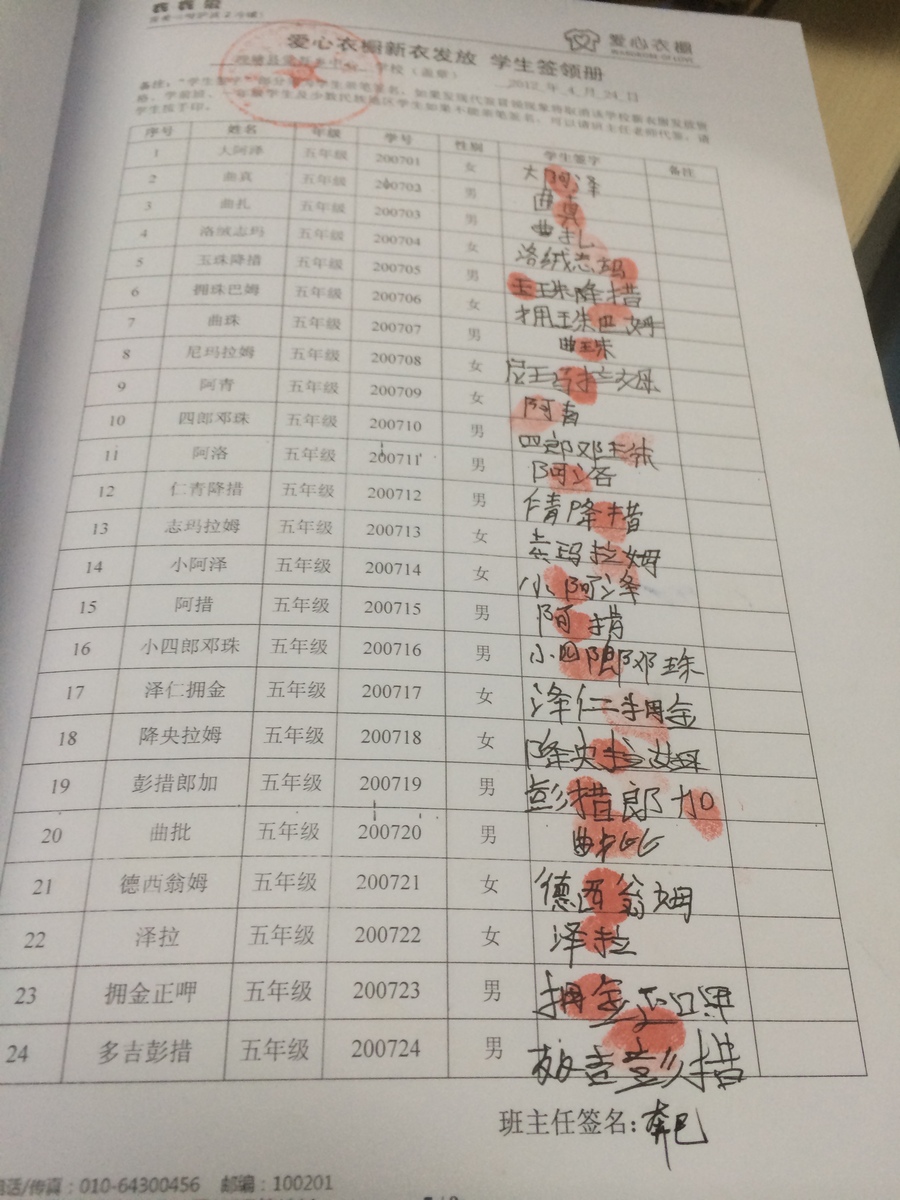 爱心衣橱
WARDROBE OF LOVE
爱心衣橱新衣发放 学生签领册
学校（盖章） 2012 年 4 月 24 日
序号 姓名 年级 学号 性别 学生签字 备注
1 大阿泽 五年级 200701 女 大阿泽
2 曲真 五年级 200703 男 曲真
3 曲扎 五年级 200703 男 曲扎
4 洛绒志玛 五年级 200704 女 洛绒志玛
5 玉珠降措 五年级 200705 男 玉珠降措
6 拥珠巴姆 五年级 200706 女 拥珠巴姆
7 曲珠 五年级 200707 男 曲珠
8 尼玛拉姆 五年级 200708 女 尼玛拉姆
9 阿青 五年级 200709 女 阿青
10 四郎邓珠 五年级 200710 男 四郎邓珠
11 阿洛 五年级 200711 男 阿洛
12 仁青降措 五年级 200712 男 仁青降措
13 志玛拉姆 五年级 200713 女 志玛拉姆
14 小阿泽 五年级 200714 女 小阿泽
15 阿措 五年级 200715 男 阿措
16 小四郎邓珠 五年级 200716 男 小四郎邓珠
17 泽仁拥金 五年级 200717 女 泽仁拥金
18 降央拉姆 五年级 200718 女 降央拉姆
19 彭措郎加 五年级 200719 男 彭措郎加
20 曲批 五年级 200720 男 曲批
21 德西翁姆 五年级 200721 女 德西翁姆
22 泽拉 五年级 200722 女 泽拉
23 拥金正呷 五年级 200723 男 拥金正呷
24 多吉彭措 五年级 200724 男 多吉彭措
班主任签名：
电话/传真：010-64300456 邮编：100201